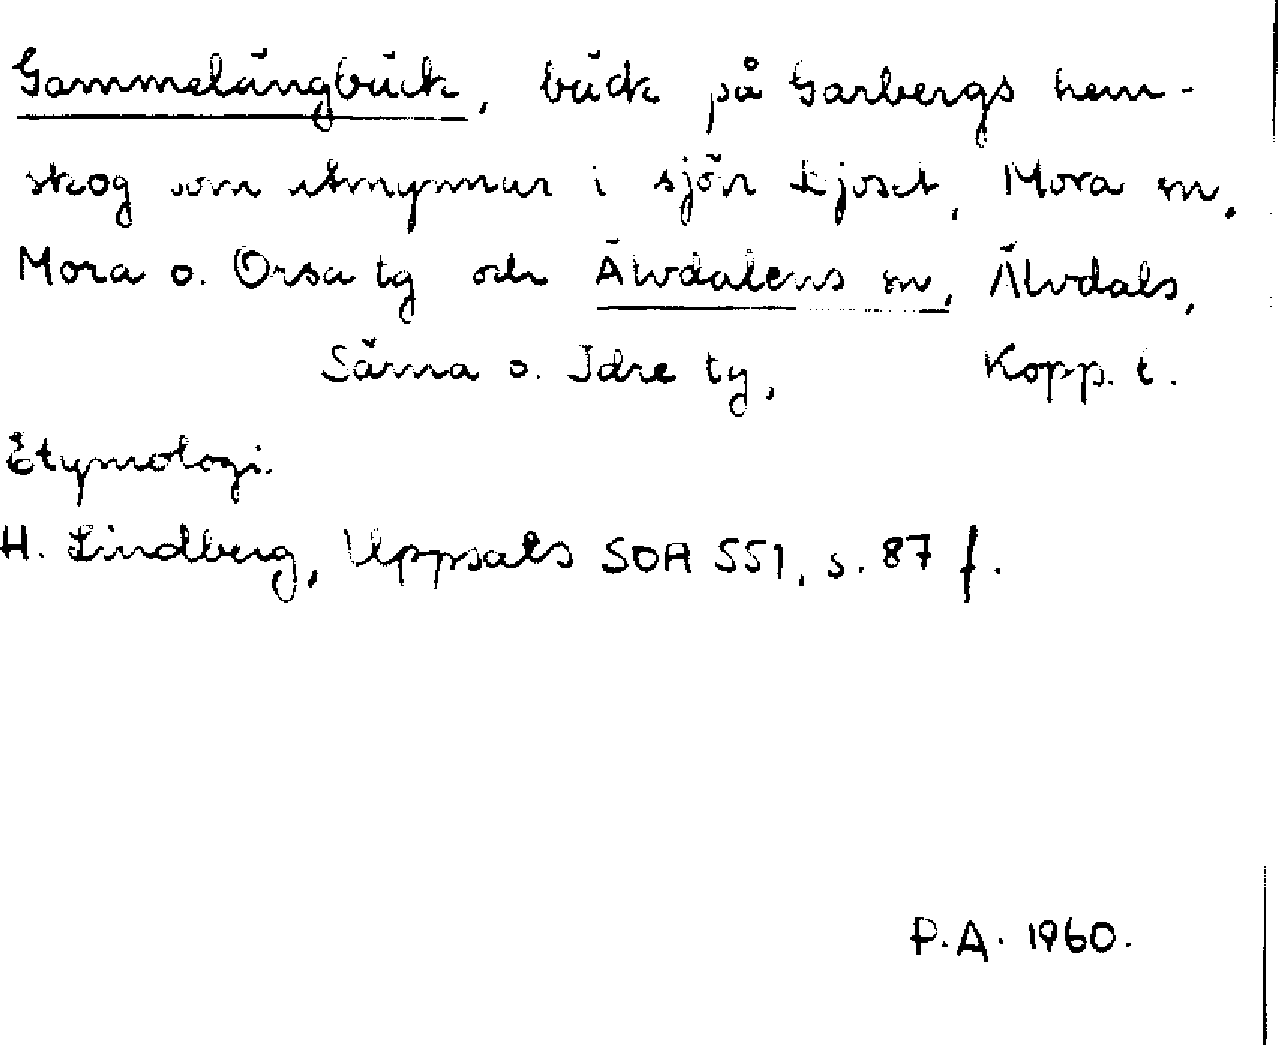 Gammelängbäck, bäck på Garbergs hem-
skog som utmynnar i sjön Ljoset, Mora sn,
Mora o. Orsa tg och Älvdalens sn, Älvdals,
Särna o. Idre tg, Kopp. l.
Etymologi.
H. Lindberg, Uppsats SOA 551, s. 87 f.
P.A. 1960.